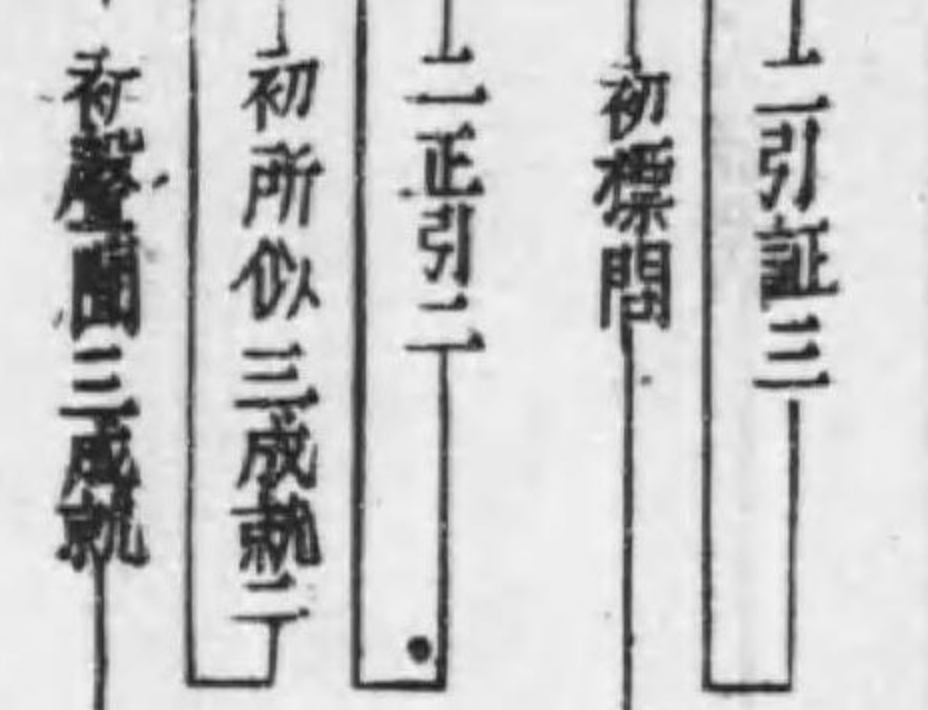 二引証三
初標問
二正引二
初所似三成就二
初聲聞三成就